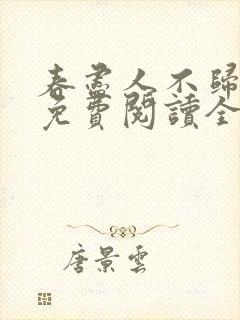 春盡人不歸
免費閱讀全
唐景雲